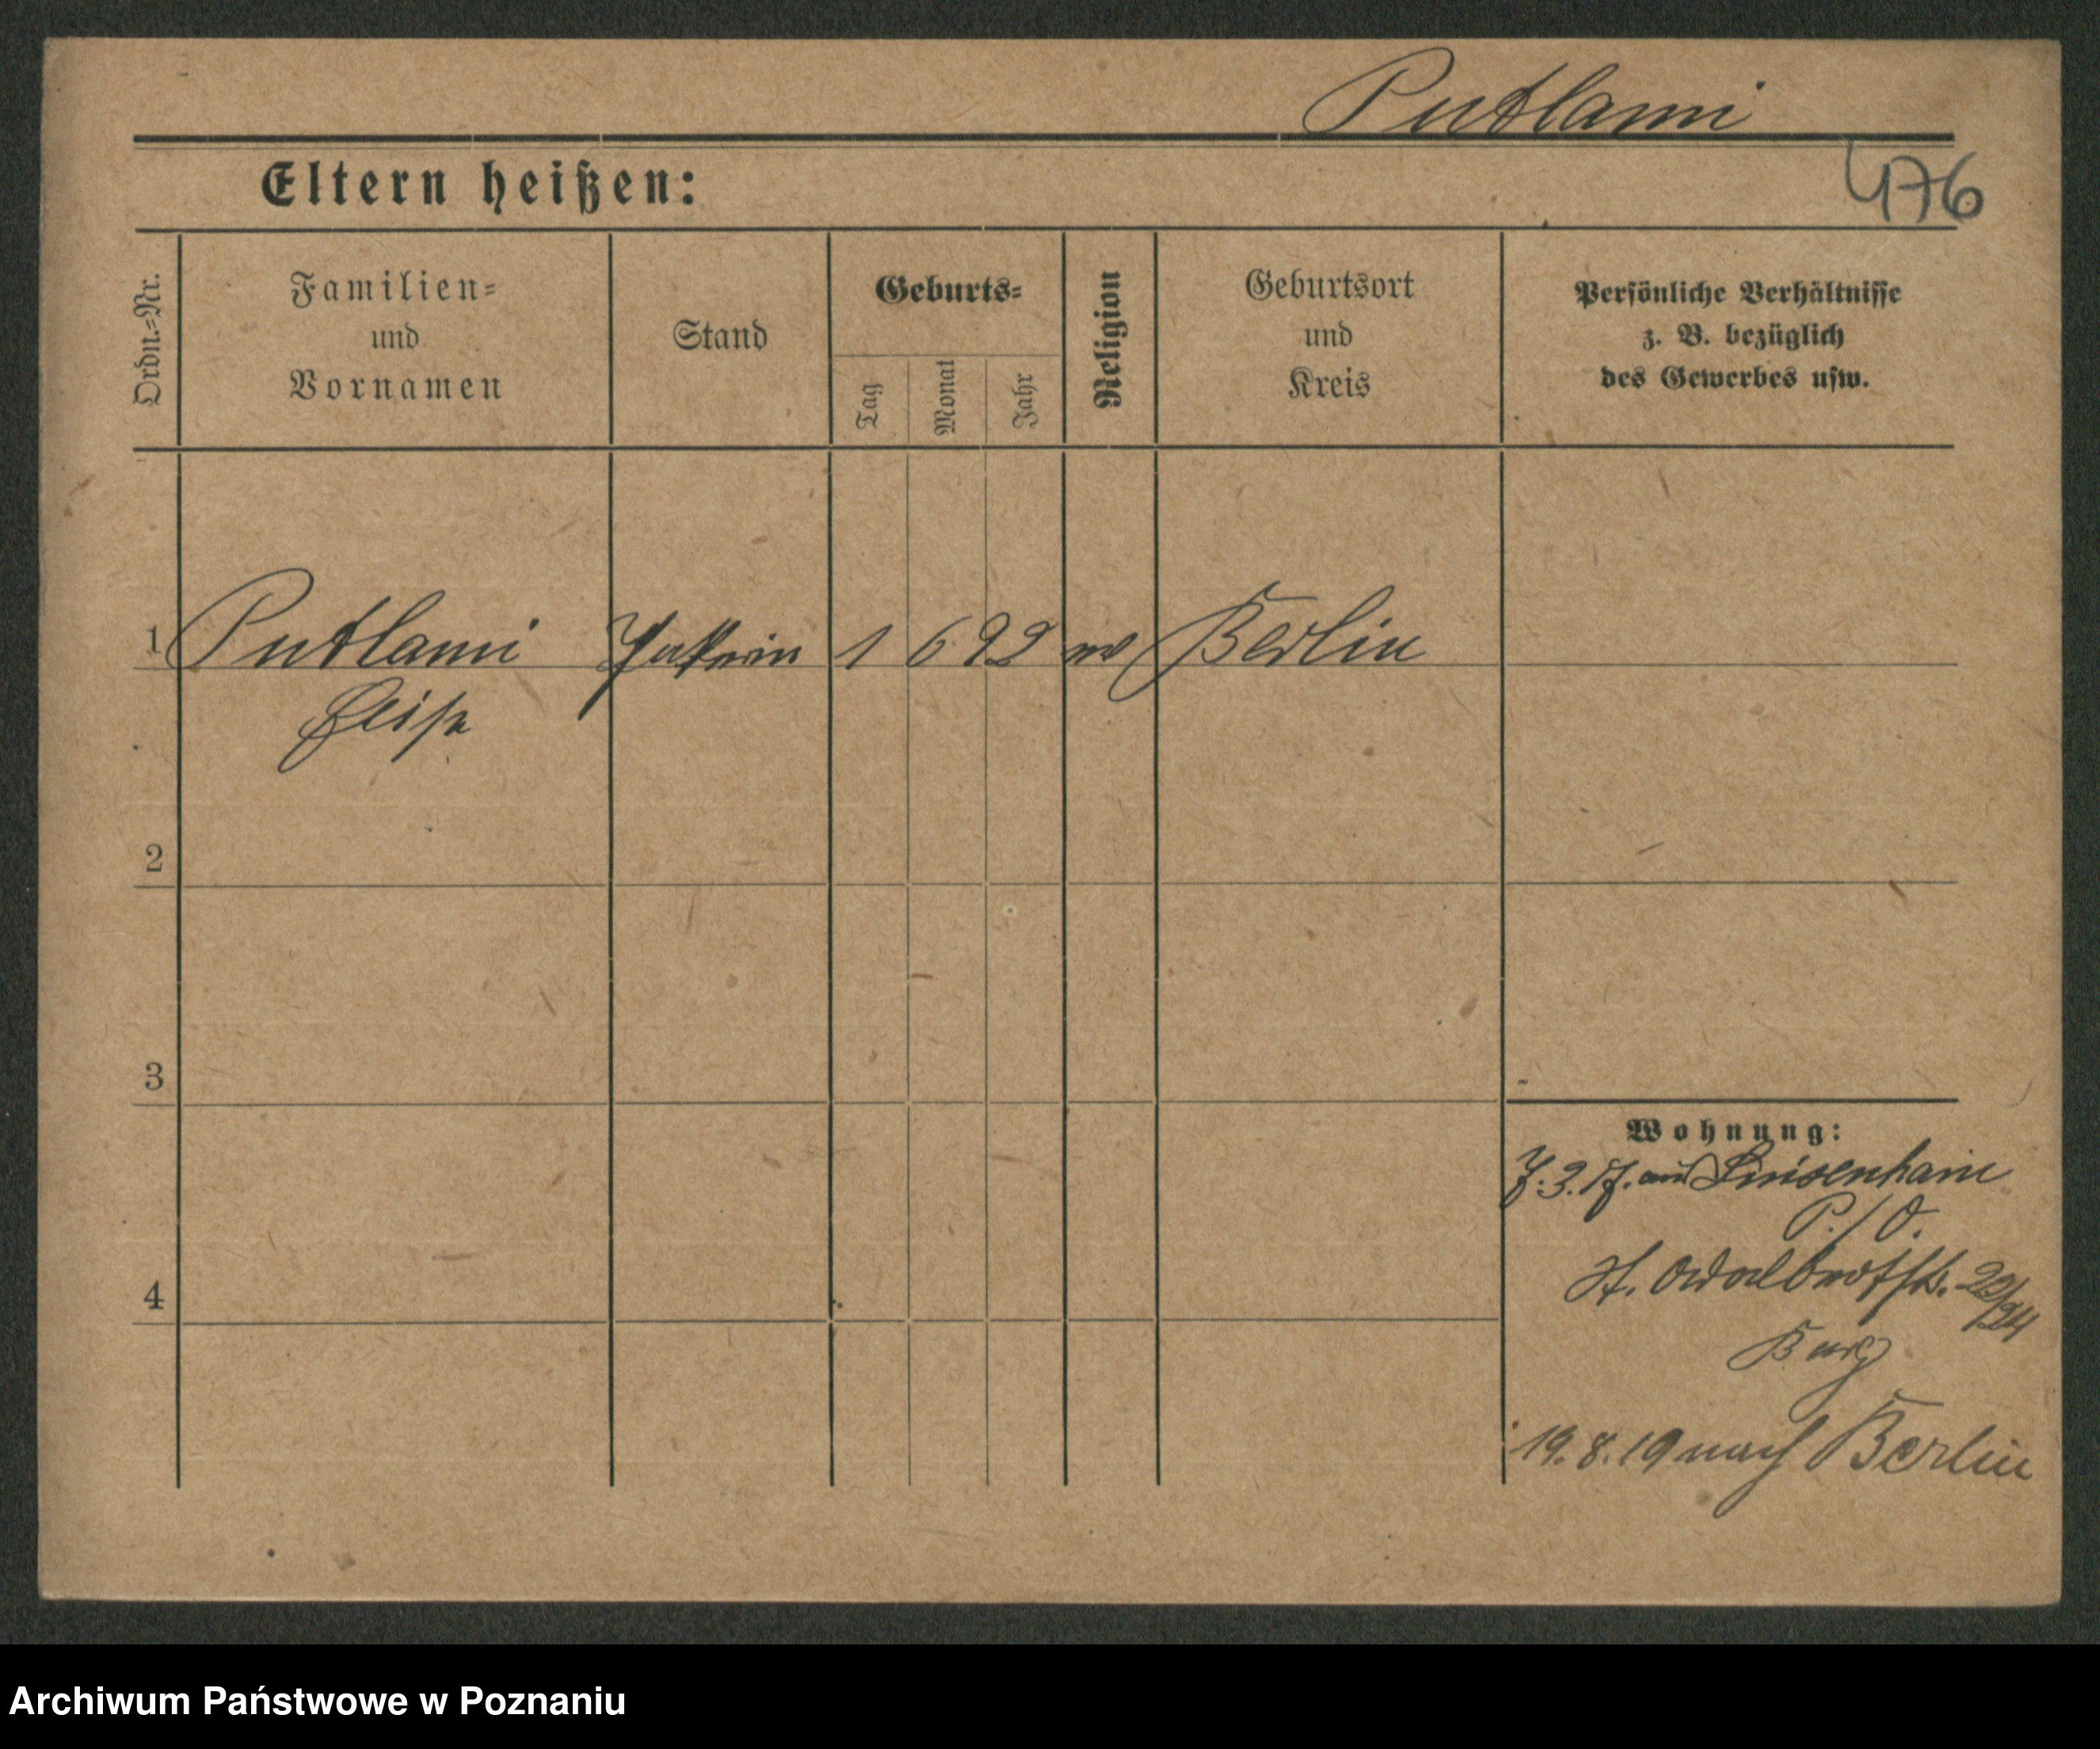 Putlami
476
Eltern heißen:
Ordn.=Nr.
Familien=
und
Vornamen
Stand
Geburts=
Tag
Monat
Jahr
Religion
Geburtsort
und
Kreis
Persönliche Verhältnisse
z. B. bezüglich
des Gewerbes usw.
1 Putlami 1 6 92 Berlin
2
3
4
Wohnung:
7.3.17. aus Luisenhain
P./O.
St. Adalbertstr.
Burg
19.8.19 nach Berlin
Archiwum Państwowe w Poznaniu